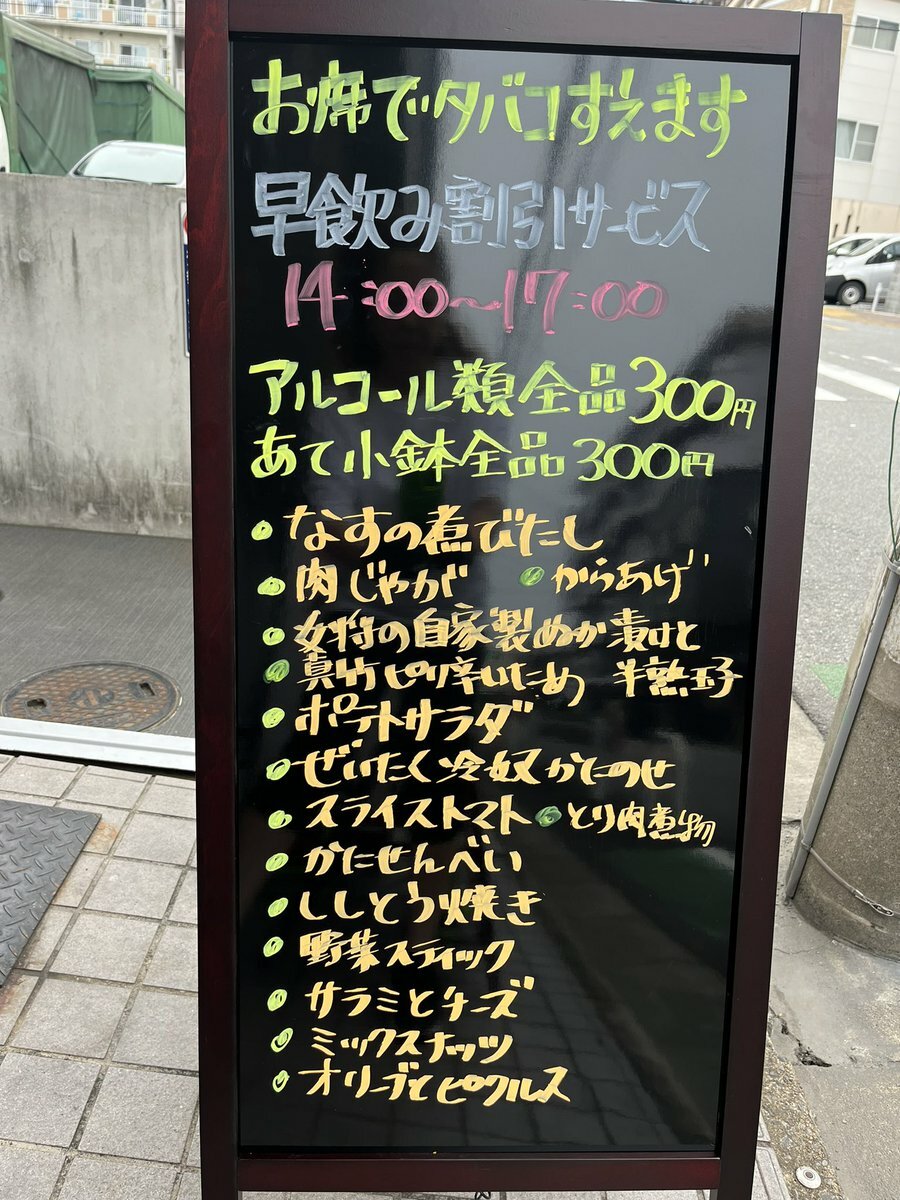 お席でタバコすえます
早飲み割引サービス
14:00〜17:00
アルコール類全品300円
あて小鉢全品300円
なすの煮びたし
肉じゃが からあげ
女将の自家製ぬか漬けと
真竹ピリ辛いため 半熟玉子
ポテトサラダ
ぜいたく冷奴かにのせ
スライストマト とり肉煮物
かにせんべい
ししとう焼き
野菜スティック
サラミとチーズ
ミックスナッツ
オリーブとピクルス